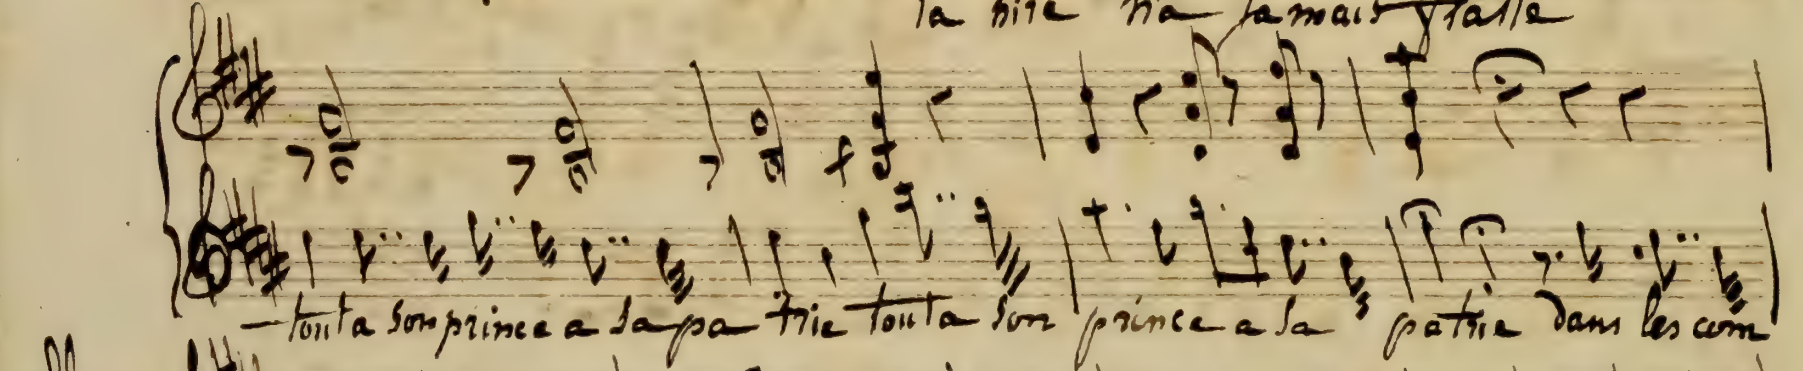 la nire n'a jamais
touta son prince a sa patrie touta son prince a sa patrie dans les com